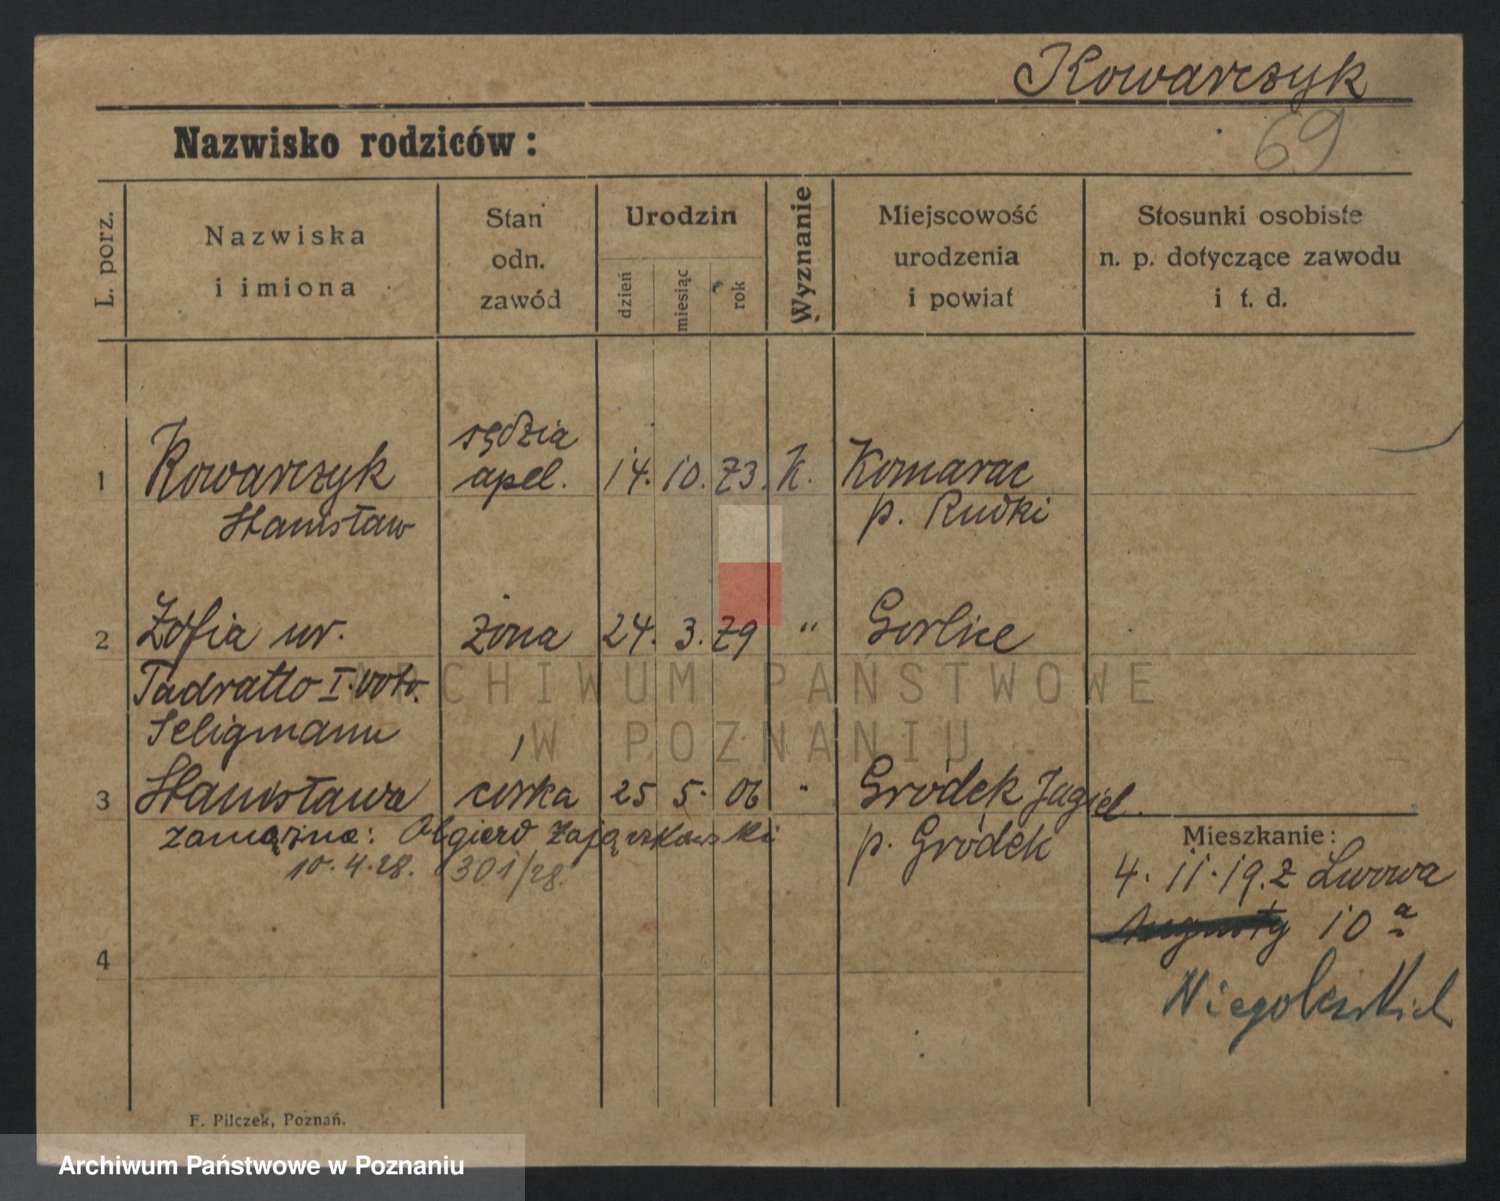 Kowarczyk
69
Nazwisko rodziców:
L. porz.
Nazwiska
i imiona
Stan
odn.
zawód
Urodzin
dzień
miesiąc
rok
Wyznanie
Miejscowość
urodzenia
i powiat
Stosunki osobiste
n. p. dotyczące zawodu
i t. d.
1 Kowarczyk sędzia apel. 14. 10. 73. K. Komarac
Stanisław p. Rudki
2 Zofia ur. żona 24. 3. 79 " Gorlice
Tadratto I. voto.
Seligmann
3 Stanisława córka 25 5. 06 " Gródek Jagiel.
zamężna: Olgierd Zajączkowski p. Gródek
10. 4. 28. 301/28.
Mieszkanie:
4. 11. 19. z Lwowa
10 a
4
Niegolewskich
F. Pilczek, Poznań.
ARCHIWUM PAŃSTWOWE
W POZNANIU
Archiwum Państwowe w Poznaniu